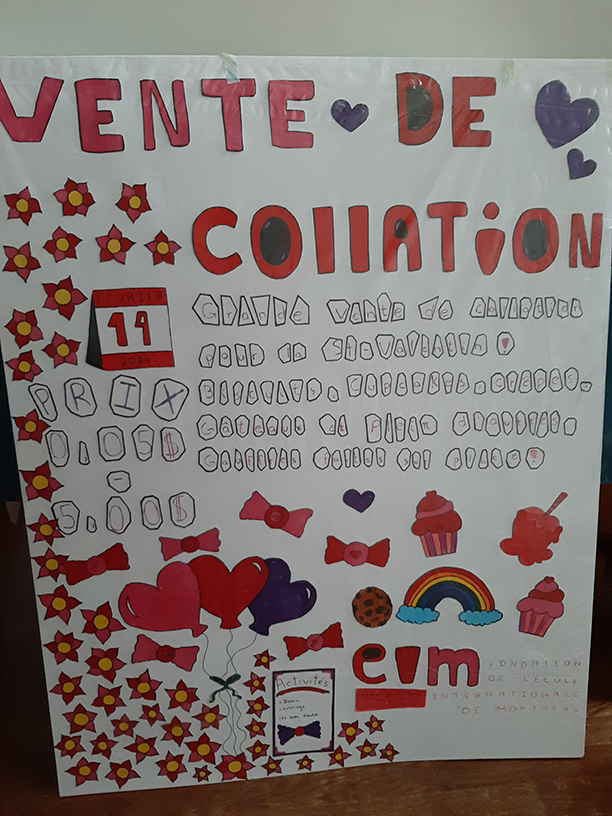 VENTE DE
COllATiON
FÉVRIER
14
2024
Grande Vente de
pour la St-Valentin !
Biscuits, Cupcakes, crêpes,
Gâteaux et plein d'autres.
Gâteries faites sur place!
PRIX
0,05$
-
5,00$
Activités
coloriage
eim
FONDATION
DE L'ÉCOLE
INTERNATIONALE
DE MONTRÉAL